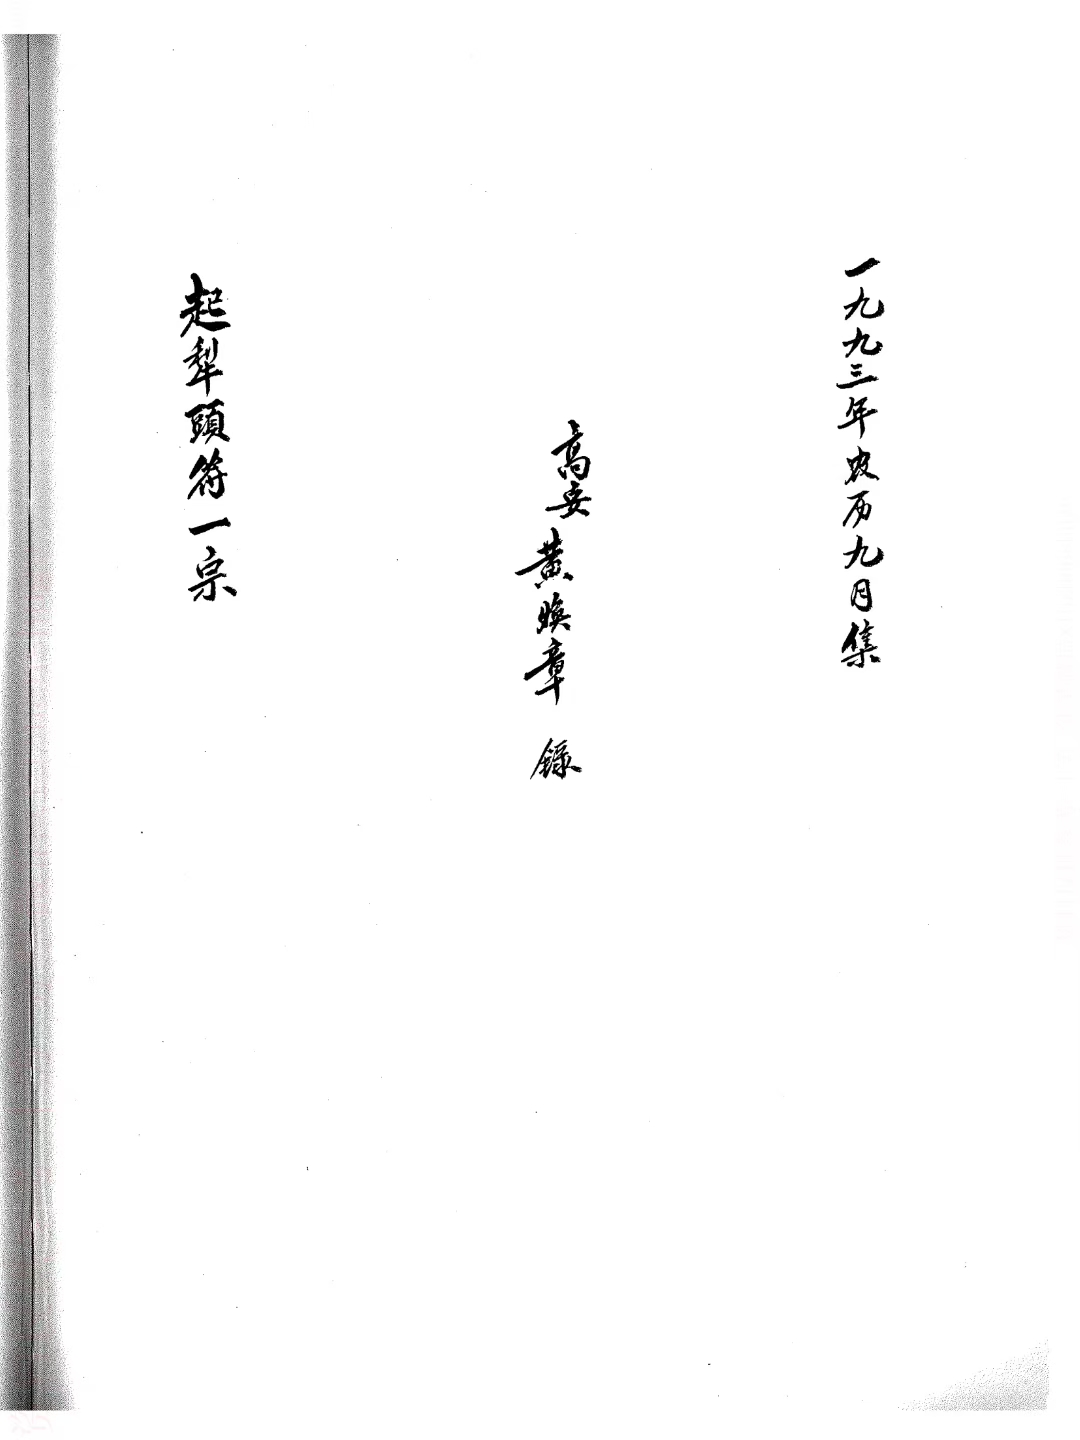 一九九三年农历九月集
高安黄焕章 錄
起犁頭符一宗